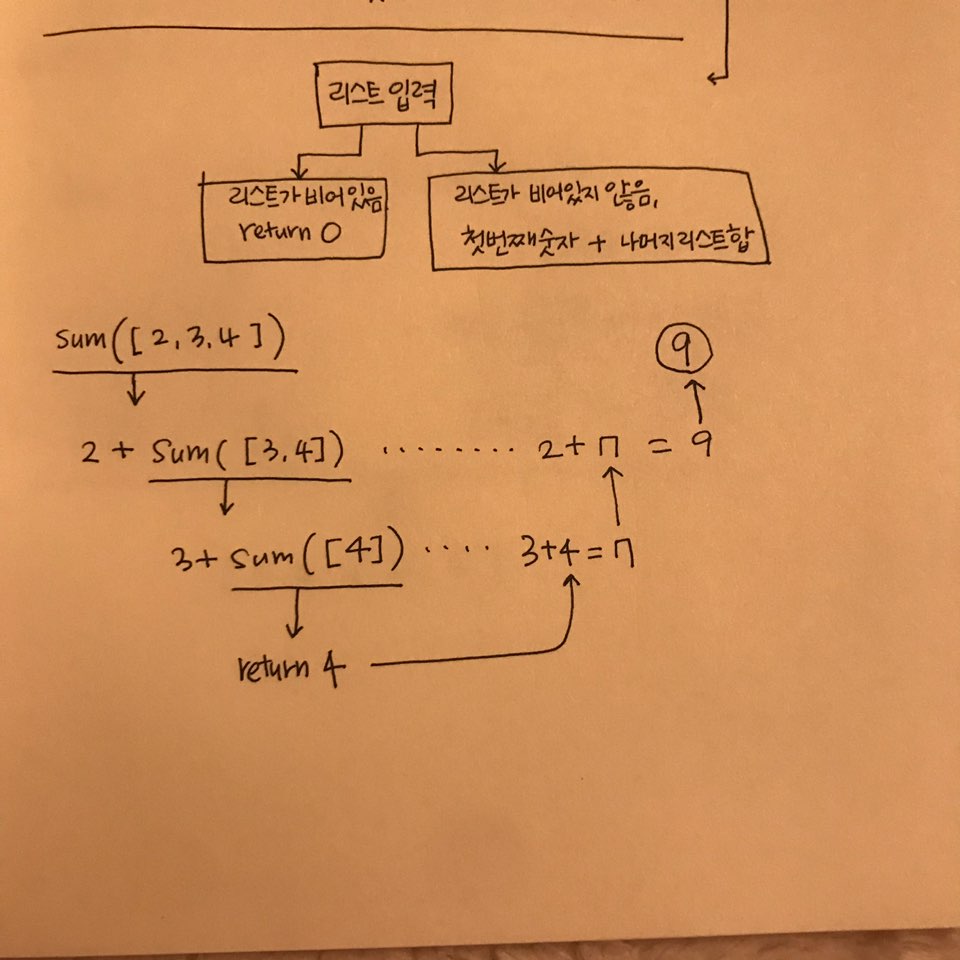 리스트 입력
리스트가 비어있음
return 0
리스트가 비어있지 않음,
첫번째숫자 + 나머지리스트합
sum([2,3,4])
9
2 + sum([3,4]) ········ 2+7 = 9
3+ sum([4]) ···· 3+4=7
return 4